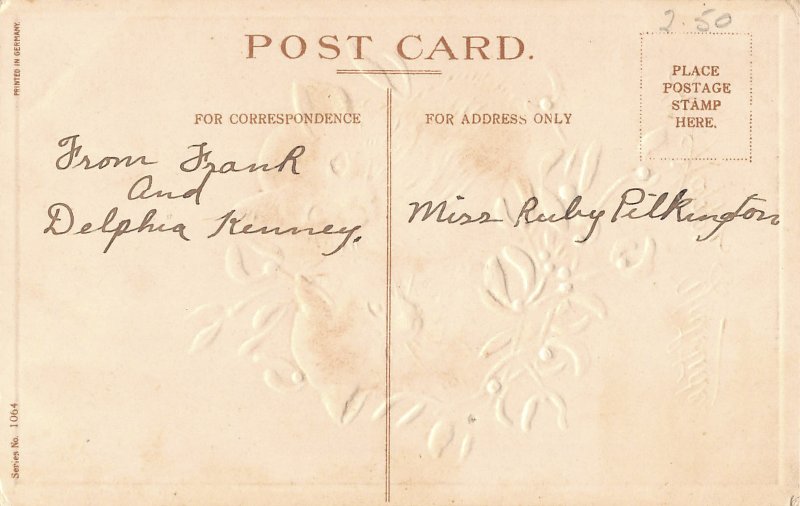 PRINTED IN GERMANY.
2.50
POST CARD.
PLACE
POSTAGE
STAMP
HERE.
FOR CORRESPONDENCE
FOR ADDRESS ONLY
From Frank
And
Delphia Kenney.
Miss Ruby Pilkington
Series No. 1064